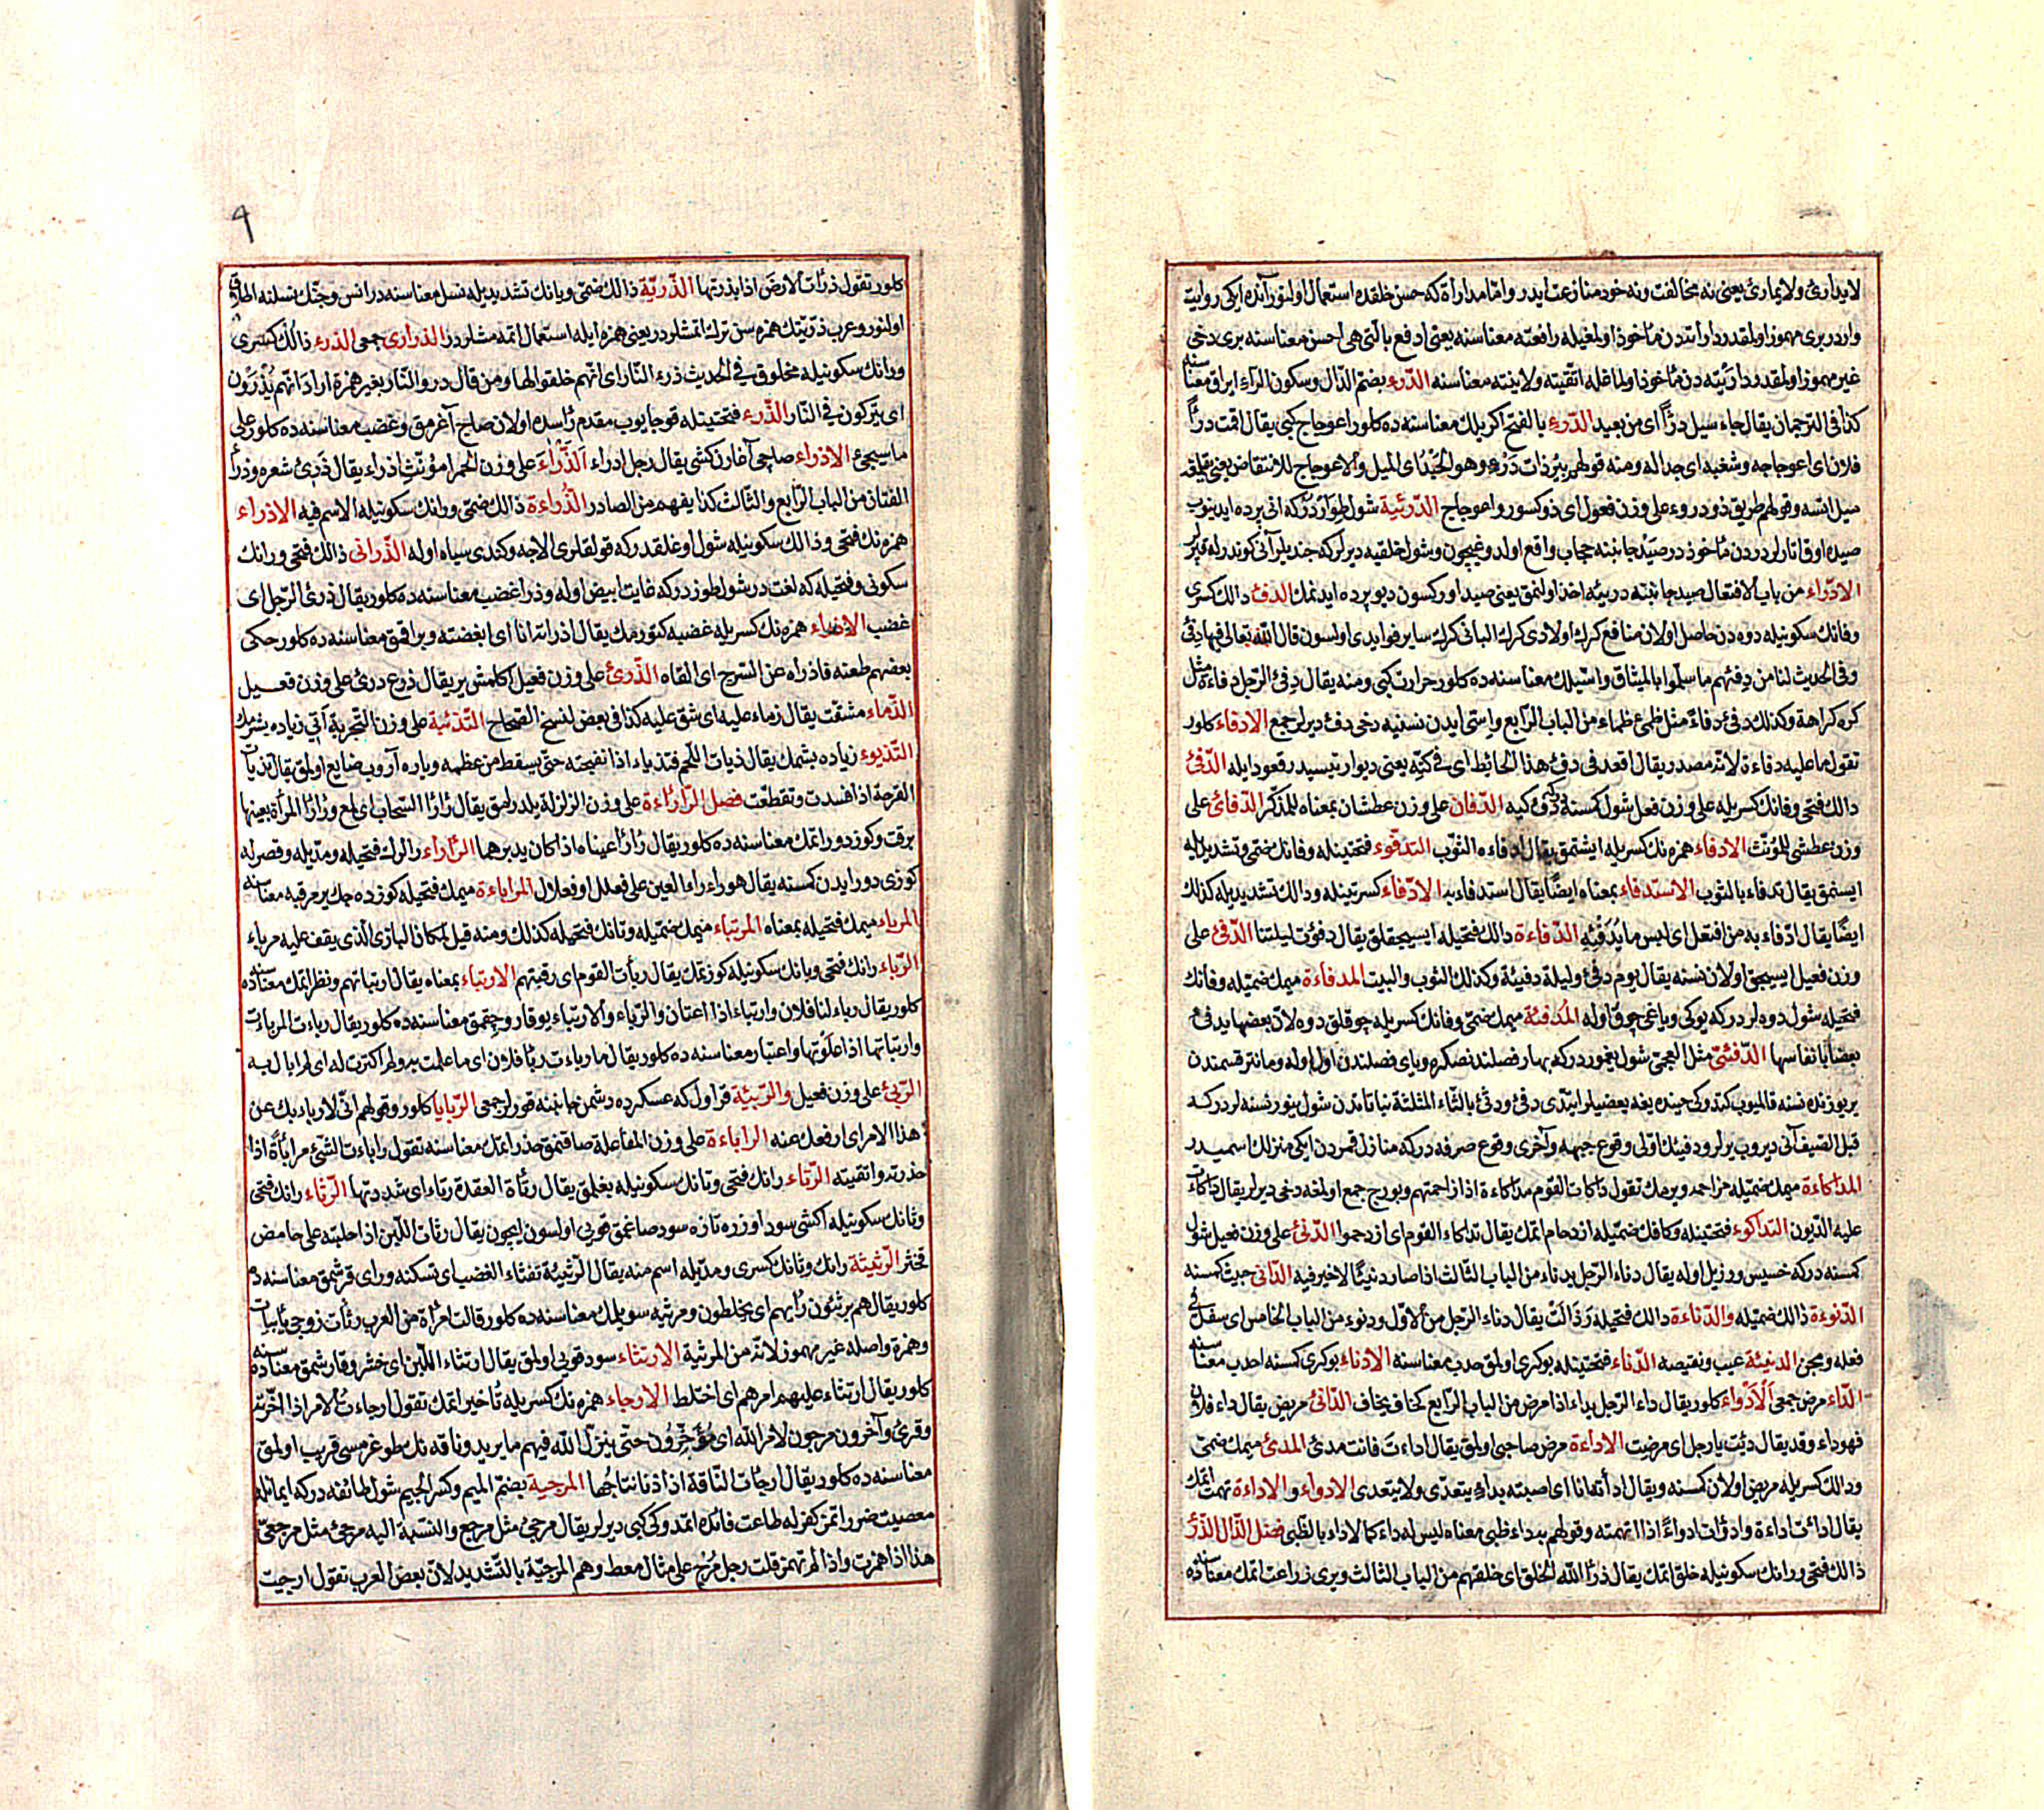 لا يدارئ ولا يمارئ يعنى نه مخالفت ونه خود منازعت ايدر وامّا مداراة كه حسن خلقده استعمال اولنور آنده ايكى روايت
واردر برى مهموز اولمقدر دارأت دن مأخوذ اولمغيله دافعته معناسنه يعنى ادفع بالتى هى احسن معناسنه برى دخى
غير مهموز اولمقدر داريته دن مأخوذ اولماغله اتّقيته ولاينته معناسنه الدّرء بضمّ الدّال وسكون الرّاء ايراق معناسنه
كذا فى الترجمان يقال جاء سيل درأً اى من بعيد الدّرء بالفتح اكريلك معناسنده كلور اعوجاج كبى يقال اقمت درأ
فلان اى اعوجاجه وشغبه اى جداله ومنه قولهم بئر ذات درء وهو الحيد اى الميل والاعوجاج للانتقاض يعنى
ميل ايتسه وقولهم طريق ذو دروء على وزن فعول اى ذو كسور واعوجاج الدّريئة شول طوار در كه انى پرده ايدينوب
صيده اوق اتارلر دردن مأخوذدر صيد جانبنه حجاب واقع اولدوغيچون وشول حلقيه ديرلر كه جنديلر آنى كوندرله
الادّراء من باب الافتعال صيد جانبنه دريئه اخذ اولنمق يعنى صيد اوركسون ديو پرده ايدنمك الدفء دالك كسرى
وفانك سكونيله دوه دن حاصل اولان منافع كرك اولادى كرك البانى كرك ساير فوايدى اولسون قال الله تعالى فيها دفء
وفى الحديث لنا من دفئهم ما سلّموا بالميثاق واسّيلك معناسنده كلور حرارت كبى ومنه يقال دفئ الرّجل دفاءة مثل
كره كراهة وكذلك دفئ دفأ مثل ظمئ ظماء من الباب الرّابع واسّى ايدن نسنيه دخى دفء ديرلر جمع الادفاء كلور
تقول ما عليه دفاءة لانّه مصدر يقال اقعد فى دفء هذا الحائط اى فى كنّه يعنى ديوار تبسيدر قعود ايله الدّفئ
دالك فتحى وفانك كسريله على وزن فعل شول كمسنه در كه دفء كيه الدّفآن على وزن عطشان بمعناه للمذكّر الدّفائى على
وزن عطشى للمؤنّث الادفاء همزه نك كسريله ايستمق يقال ادفاءه الثوب التدفّوء فتحتينله وفانك ضمّى وتشديديله
ايسنمق يقال تدفاء بالثوب الاستدفاء بمعناه ايضا يقال استدفاء به الادّفاء كسرتينله ودالك تشديديله كذلك
ايضا يقال ادّفاء به من افتعل اى لبس ما يدفئه الدّفاءة دالك فتحيله ايسيجقلق يقال دفؤت ليلتنا الدّفئ على
وزن فعيل ايسيجق اولان نسنه يقال يوم دفئ وليلة دفيئة وكذلك الثوب والبيت المدفاءة ميمك ضمّيله وفانك
فتحيله شول دوه لردركه يوكى وياغى چوق اوله المدفئة ميمك ضمّى وفانك كسريله چوقلق دوه لانّ بعضها يدفئ
بعضا بانفاسها الدّفئىّ مثل العجمىّ شول يغموردركه بهار فصلندنصكره وياى فصلندن اول اوله ومانر قسمندن
ير يوزنده نسنه قالميوب كتدوكى حينده يغه بعضيلر ايتدى دفئ ودثئ بالثّاء المثلثة نباتاتدن شول ينور نسنه لردركه
قبل الصّيف آنى ديروب يرلر ودفئينك اوّلى وقوع جبهه وآخرى وقوع صرفه در كه منازل قمردن ايكى منزلك اسميدر
المداكاءة ميمك ضمّيله مزاحمه ويرمك تقول داكات القوم مداكاءة اذا زاحمتهم وبورج جمع اولمغه دخى ديرلر يقال داكات
عليه الدّيون التداكوء فتحتينله وكافك ضمّيله ازدحام اتمك يقال تداكاء القوم اى ازدحموا الدّنئ على وزن فعيل شول
كمسنه دركه خسيس ورزيل اوله يقال دناء الرّجل يدناء من الباب الثالث اذا صار دنيئا لا خير فيه الدّانى خبيث كمسنه
الدّنوءة دالك ضمّيله والدّناءة دالك فتحيله رذالت يقال دناء الرّجل من الاوّل ودنوء من الباب الخامس اى سفل فى
فعله ومجن الدنيئة عيب ونقيصه الدّناء فتحتينله بوكرى اولمق حدب معناسنه الادناء بوكرى كمسنه احدب معناسنه
الدّاء مرض جمعى الادواء كلور يقال داء الرّجل يداء اذا مرض من الباب الرّابع كخاف يخاف الدّائئ مريض يقال داء فلان
فهو داء وقد يقال دئت يا رجل اى مرضت الاداءة مرض صاحبى اولمق يقال اداءت فانت مدئ المدئ ميمك ضمّى
ودالك كسريله مريض اولان كمسنه ويقال ادأته انا اى اصبته بداء يتعدّى ولا يتعدى الادواء والاداءة تهمت اتمك
يقال ادأت اداءة وادوأت ادواءً اذا اتهمته وقولهم به داء ظبى معناه ليس له داء كما لا داء بالظّبى فصل الذّال الذّرء
ذالك فتحى ورانك سكونيله خلق اتمك يقال ذرأ الله الخلق اى خلقهم من الباب الثالث وبرى زراعت اتمك معناسنده
٩
كلور تقول ذرأت الارض اذا بذرتها الذّريّة ذالك ضمّى ويانك تشديديله نسل معناسنه در انس وجنّك نسلنه اطلاق
اولنور وعرب ذرّيّتك همزه سن ترك اتمشلردر يعنى همزه ايله استعمال اتمه مشلردر الذرارى جمعى الذرء ذالك كسرى
ورانك سكونيله مخلوق فى الحديث ذرء النّار اى انّهم خلقوا لها ومن قال ذرو النّار بغير همزة اراد انّهم يذرون
اى يتركون فى النّار الذّرء فتحتينله قوجايوب مقدم رأسده اولان صاچ آغرمق وغضب معناسنده كلور على
ما سيجئ الاذراء صاچى آغارن كشى يقال رجل اذراء الذّرآء على وزن الحمرا مؤنّث اذراء يقال ذرئ شعره وذرأ
لغتان من الباب الرّابع والثّالث كذا يفهم من المصادر الذّراءة ذالك ضمّى ورانك سكونيله الاسم فيه الاذراء
همزه نك فتحى وذالك سكونيله شول اوغلقدركه قولقلرى الاجه وكندى سياه اوله الذّرآنى ذالك فتحى ورانك
سكونى وفتحيله كه لغتدر شول طوزدركه غايت ابيض اوله وذرأ غضب معناسنده كلور يقال ذرئ الرّجل اى
غضب الاذراء همزه نك كسريله غضبه كتورمك يقال اذراته انا اى اغضبته وبراقمق معناسنده كلور حكى
بعضهم طعنه فاذراه عن السّرج اى القاه الذّرئ على وزن فعيل اكلمش ير يقال ذرع ذرئ على وزن فعيل
الذّماء مشقّت يقال زماء عليه اى شق عليه كذا فى بعض نسخ الصّحاح التّذيئة على وزن التّجربة آتى زياده پشرمك
التّذيوء زياده پشمك يقال ذيات اللّحم فتذياء اذا نضيجته حتّى يسقط من عظمه وياره آزوب ضايع اولمق يقال تذيات
القرحة اذا فسدت وتقطّعت فصل الرّا الرأرأءة على وزن الزلزلة يلدرامق يقال رأرأ السّحاب اى لمع ورأرأ المرأة بعينها
برقت وكوز دوراتمك معناسنده كلور يقال رأرأ عيناه اذا كان يديرهما الرّأراء رالرك فتحيله ومدّيله وقصرله
كوزى دورايدن كمسنه يقال هو رأراء العين على فعلل او فعلال المراباءة ميمك فتحيله كوزده جك ير مرقبه معناسنه
المرباء ميمك فتحيله بمعناه المرتباء ميمك ضمّيله وتانك فتحيله كذلك ومنه قيل لمكان البازى الّذى يقف عليه مرباء
الرّباء رانك فتحى وبانك سكونيله كوزتمك يقال ربأت القوم اى رقبتهم الارتباء بمعناه يقال ارتباتهم ونظر اتمك معناسنده
كلور يقال رباء لنا فلان وارتباء اذا اعتان والرّباء والارتباء يوقارو چقمق معناسنده كلور يقال رباءت المرباءة
وارتباتها اذا علوتها واعتبار معناسنده كلور يقال ما رباءت ربأ فلان اى ما علمت به ولم اكترث له اى لم ابال به
الرّبئ على وزن فعيل والرّبيئة قراول كه عسكرده دشمن جانبنه قورلر جمعى الرّبايا كلور وقولهم انّى لارباء بك عن
هذا الامر اى ارفعك عنه الراباءة على وزن المفاعلة صاقنمق حذر اتمك معناسنه تقول راباءت الشّئ مراباءة اذا
حذرته واتقيته الرّتاء رانك فتحى وتانك سكونيله بغلمق يقال رتأة العقدة رتاء اى شددتها الرّثاء رانك فتحى
وثانك سكونيله اكشى سود اوزره تازه سود صاغمق قويى اولسون ايچون يقال رثات اللّبن اذا حلبته على حامض
فخثر الرّثيئة رانك وثانك كسرى ومدّيله اسم منه يقال الرّثيئة تفثاء الغضب اى تسكنه وراى قرشمق معناسنده
كلور يقال هم يرثئون رأيهم اى يخلطون ومرثيه سويلمك معناسنده كلور قالت امرأة من العرب رثأت زوجى بابيات
وهمزة واصله غير مهموز لانّه من المرثية الارتثاء سود قويى اولمق يقال ارتثاء اللّبن اى خثر وقارشمق معناسنده
كلور يقال ارتثاء عليهم امرهم اى اختلط الارجاء همزه نك كسريله تأخير اتمك تقول ارجاءت الامر اذا اخّرته
وقرئ وآخرون مرجون لامر الله اى مؤخّرون حتّى ينزل الله فيهم ما يريد وناقه نك طوغرمسى قريب اولمق
معناسنده كلور يقال ارجأت النّاقة اذا دنا نتاجها المرجية بضمّ الميم وكسر الجيم شول طائفه دركه ايمانله
معصيت ضرر اتمز كفرله طاعت فائده اتمدوكى كبى ديرلر يقال مرجئ مثل مرجع والنّسبة اليه مرجئ مثل مرجعىّ
هذا اذا همزت واذا لم تهمز قلت رجل مرج على مثال معط وهم المرجيّة بالتّشديد لانّ بعض العرب تقول ارجيت